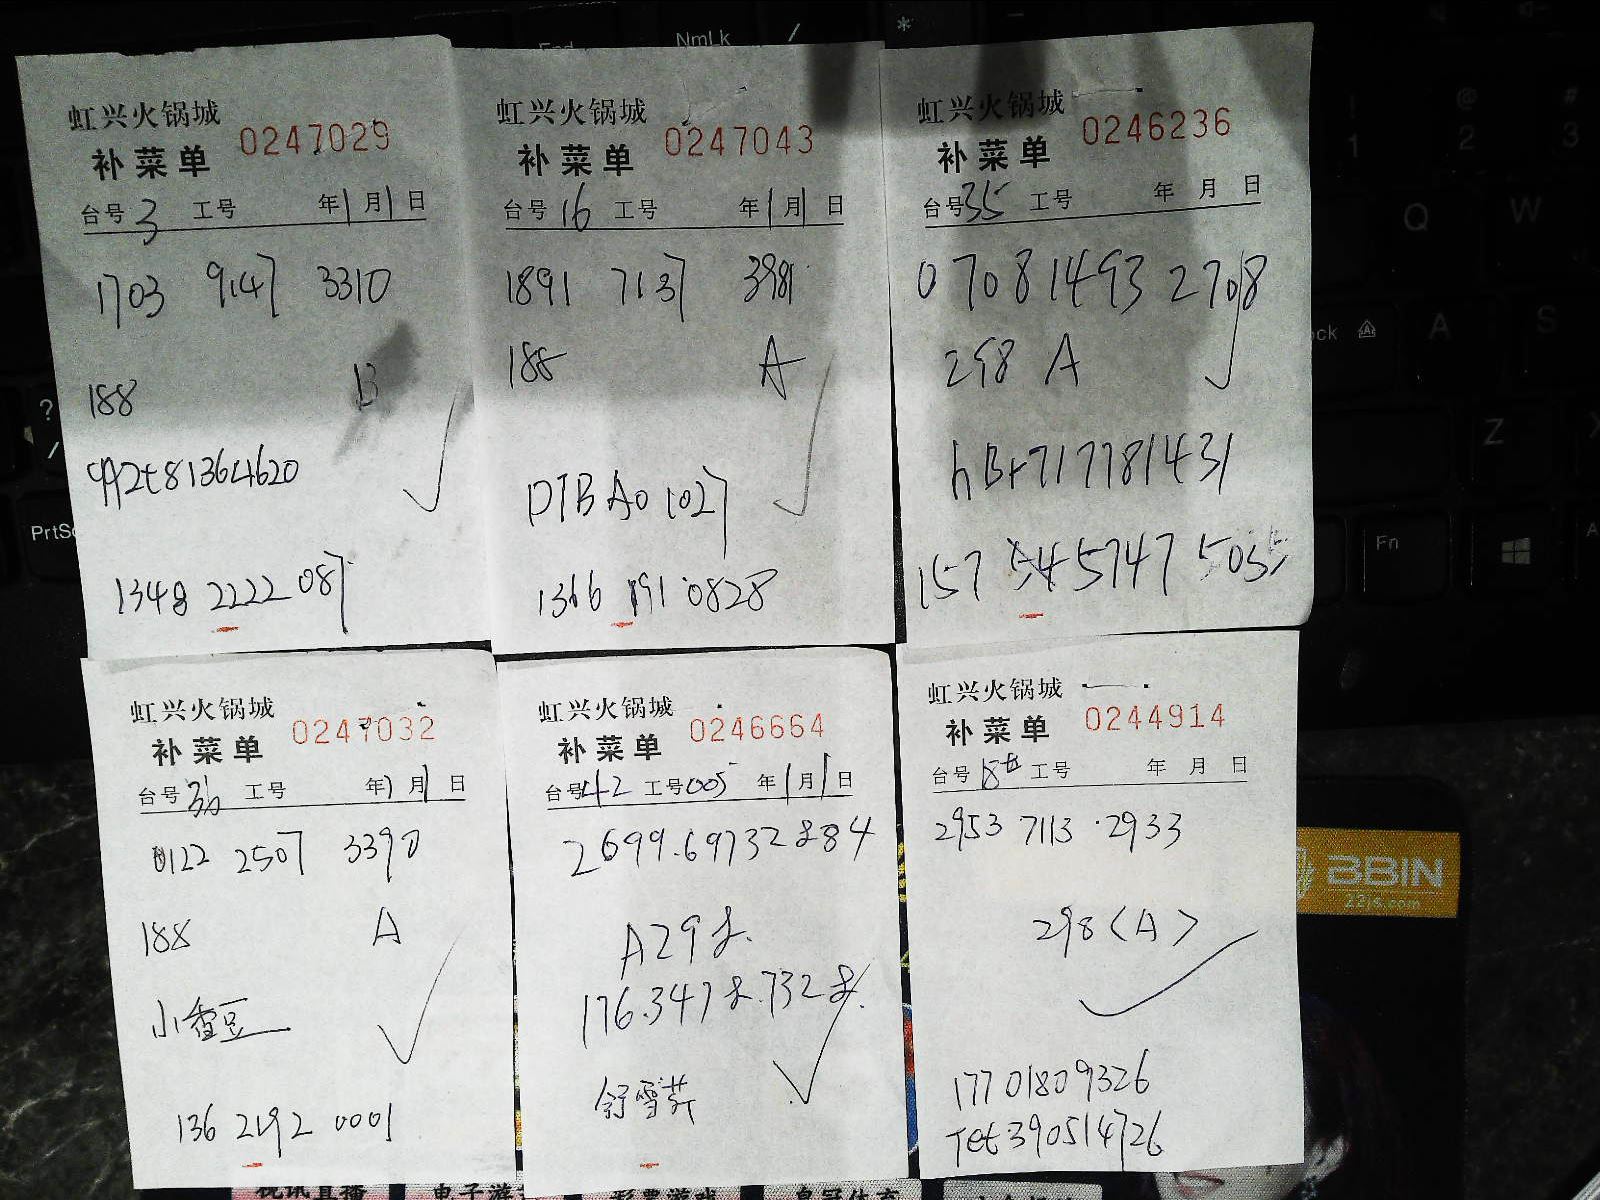 虹兴火锅城
补菜单 0247029
台号3 工号 年1月1日
1703 9147 3310
188 B
1348 2222 087
虹兴火锅城
补菜单 0247043
台号16 工号 年1月1日
1891 7137 3981
188 A
PTBA01027
1366 191 0828
虹兴火锅城
补菜单 0246236
台号35 工号 年 月 日
0 708 1493 2708
298 A
hBr717781431
157 5747 5035
虹兴火锅城
补菜单 0247032
台号36 工号 年1月1日
0122 2507 3390
188 A
小香豆
136 2192 0001
虹兴火锅城
补菜单 0246664
台号42 工号005 年1月1日
2699.69732884
A298.
176.3478.7328.
舒雪芬
虹兴火锅城
补菜单 0244914
台号 工号 年 月 日
2953 7113 2933
298<A>
177 01809326
Tet390514726
NmLk
PrtSc
Fn
Q
W
A
S
Z
BBIN
22js.com